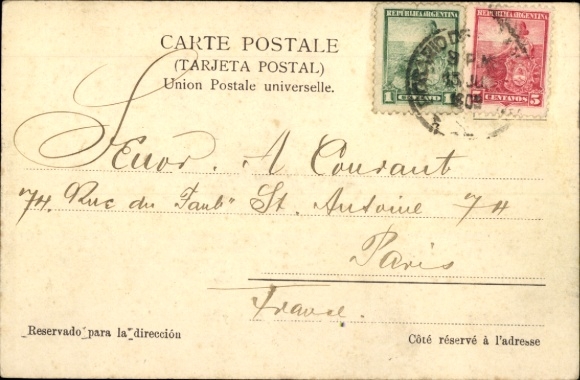 REPUBLICA ARGENTINA
REPUBLICA ARGENTINA
1 CENTAVO 1
CENTAVOS 5
9 P.M
CARTE POSTALE
(TARJETA POSTAL)
Union Postale universelle.
Señor. A Courant
74. Rue du Faub^g St. Antoine 74
Paris
France.
Reservado para la dirección
Côté réservé à l'adresse